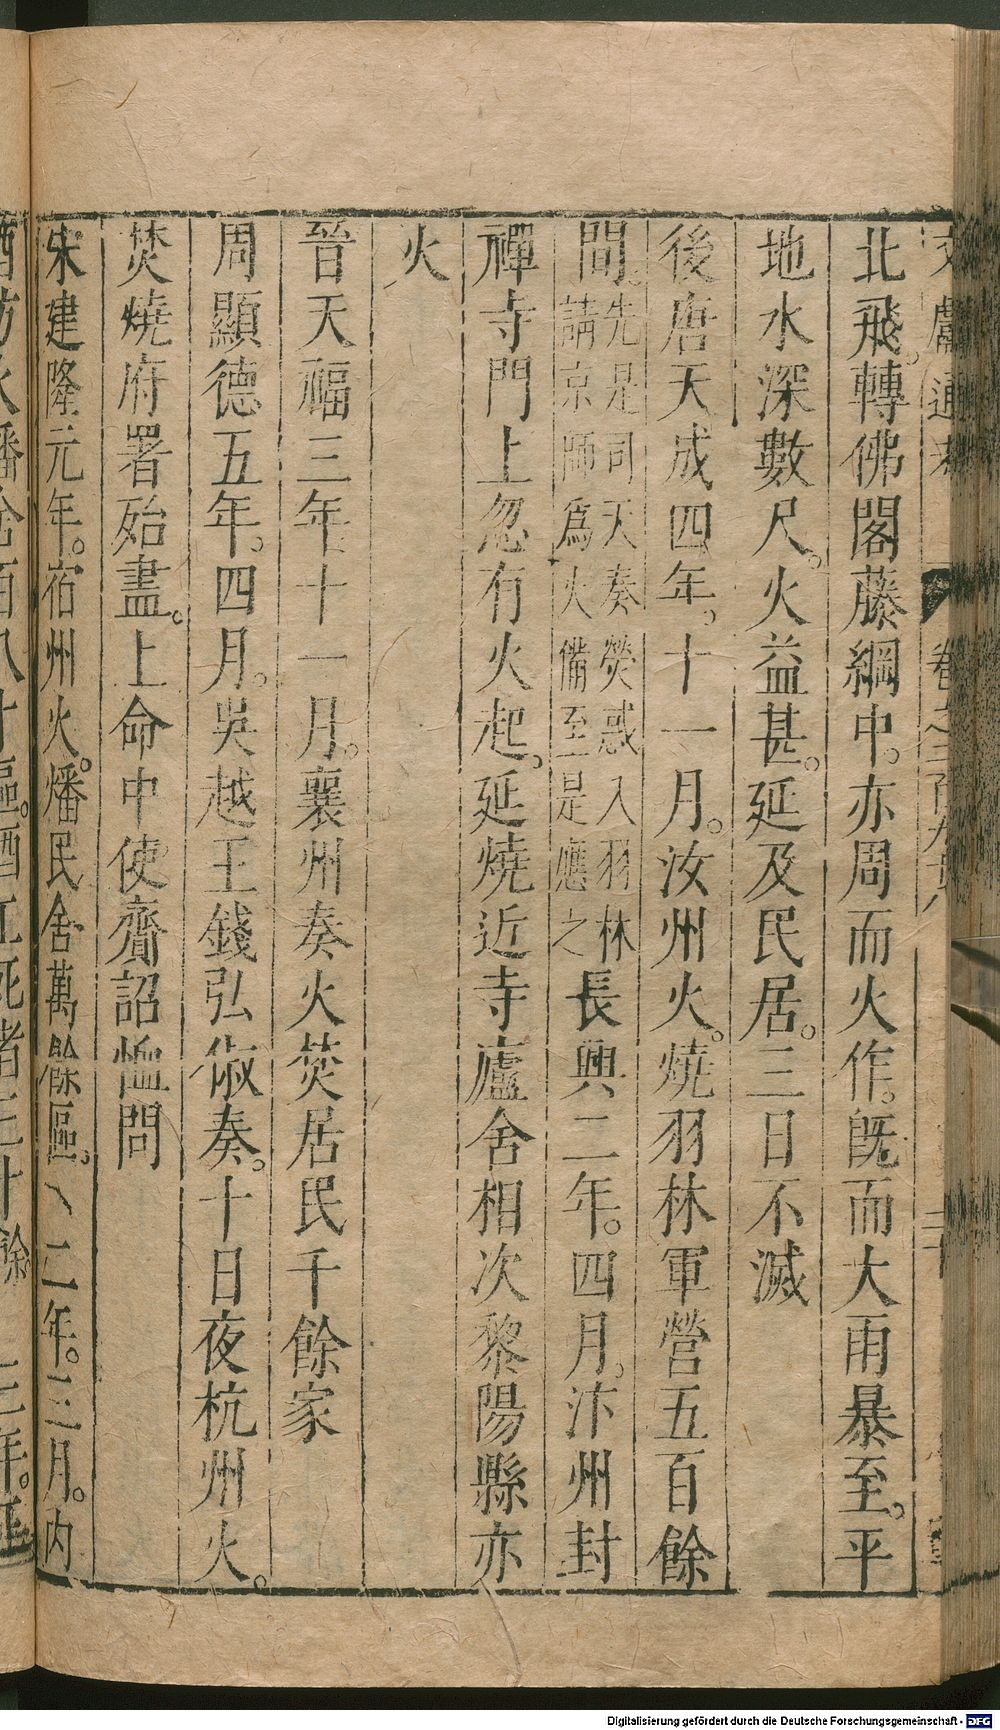 文獻通考 卷之二百九十八
北飛。轉佛閣藤綱中。亦周而火作。旣而大雨暴至。平
地水深數尺。火益甚。延及民居。三日不滅
後唐天成四年。十一月。汝州火。燒羽林軍營五百餘
間。先是司天奏熒惑入羽林請京師爲火備至是應之長興二年。四月。汴州封
禪寺門上忽有火起。延燒近寺廬舍相次黎陽縣亦
火
晉天福三年十一月。襄州奏火焚居民千餘家
周顯德五年。四月。吳越王錢弘俶奏。十日夜杭州火。
焚燒府署殆盡。上命中使齎詔恤問
宋建隆元年。宿州火。燔民舍萬餘區。二年。三月。內
Digitalisierung gefördert durch die Deutsche Forschungsgemeinschaft - DFG